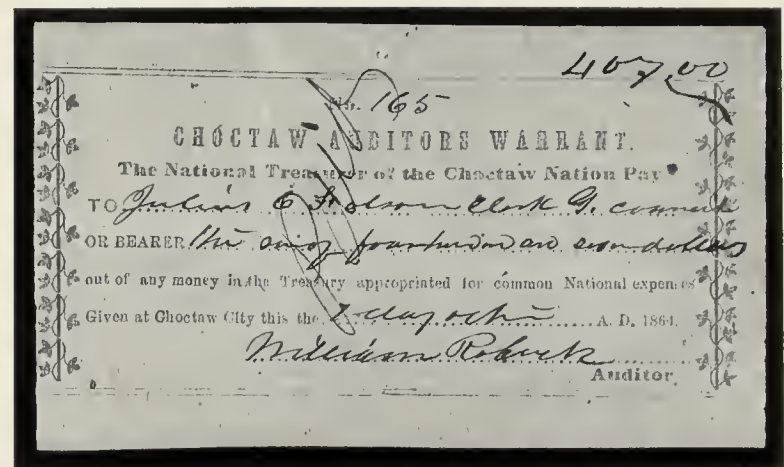 407,00
No. 165
CHOCTAW AUDITORS WARRANT.
The National Treasurer of the Choctaw Nation Pay
TO Julius C Folsom Clerk G. council
OR BEARER the sum of four hundred and seven dollars
out of any money in the Treasury appropriated for common National expenses
Given at Choctaw City this the 7 day oct A. D. 1864.
William Roebuck
Auditor.